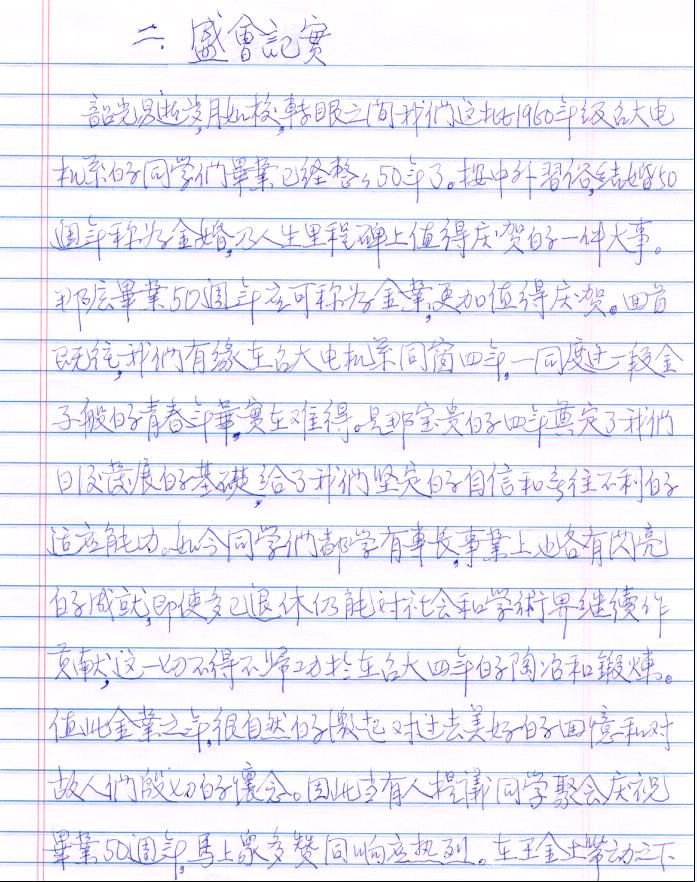 二. 盛會記實
韶光易逝,岁月如梭,轉眼之间我们这批1960年级台大电
机系的同学们畢業已经整整50年了。按中外習俗,结婚50
週年称为金婚,乃人生里程碑上值得庆贺的一件大事。
那么畢業50週年应可称为金業,更加值得庆贺。回首
既往,我们有缘在台大电机系同窗四年,一同度过一段金
子般的青春年華,實在难得。是那宝贵的四年奠定了我们
日后發展的基礎,给了我们坚定的自信和無往不利的
适应能力。如今同学们都学有專長,事業上也各有闪亮
的成就,即使多已退休仍能对社会和学術界继续作
贡献,这一切不得不歸功於在台大四年的陶冶和鍛煉。
值此金業之年,很自然的激起对过去美好的回憶和对
故人们殷切的懷念。因此当有人提議同学聚会庆祝
畢業50週年,馬上眾多赞同响应热烈。在王金土带动之下